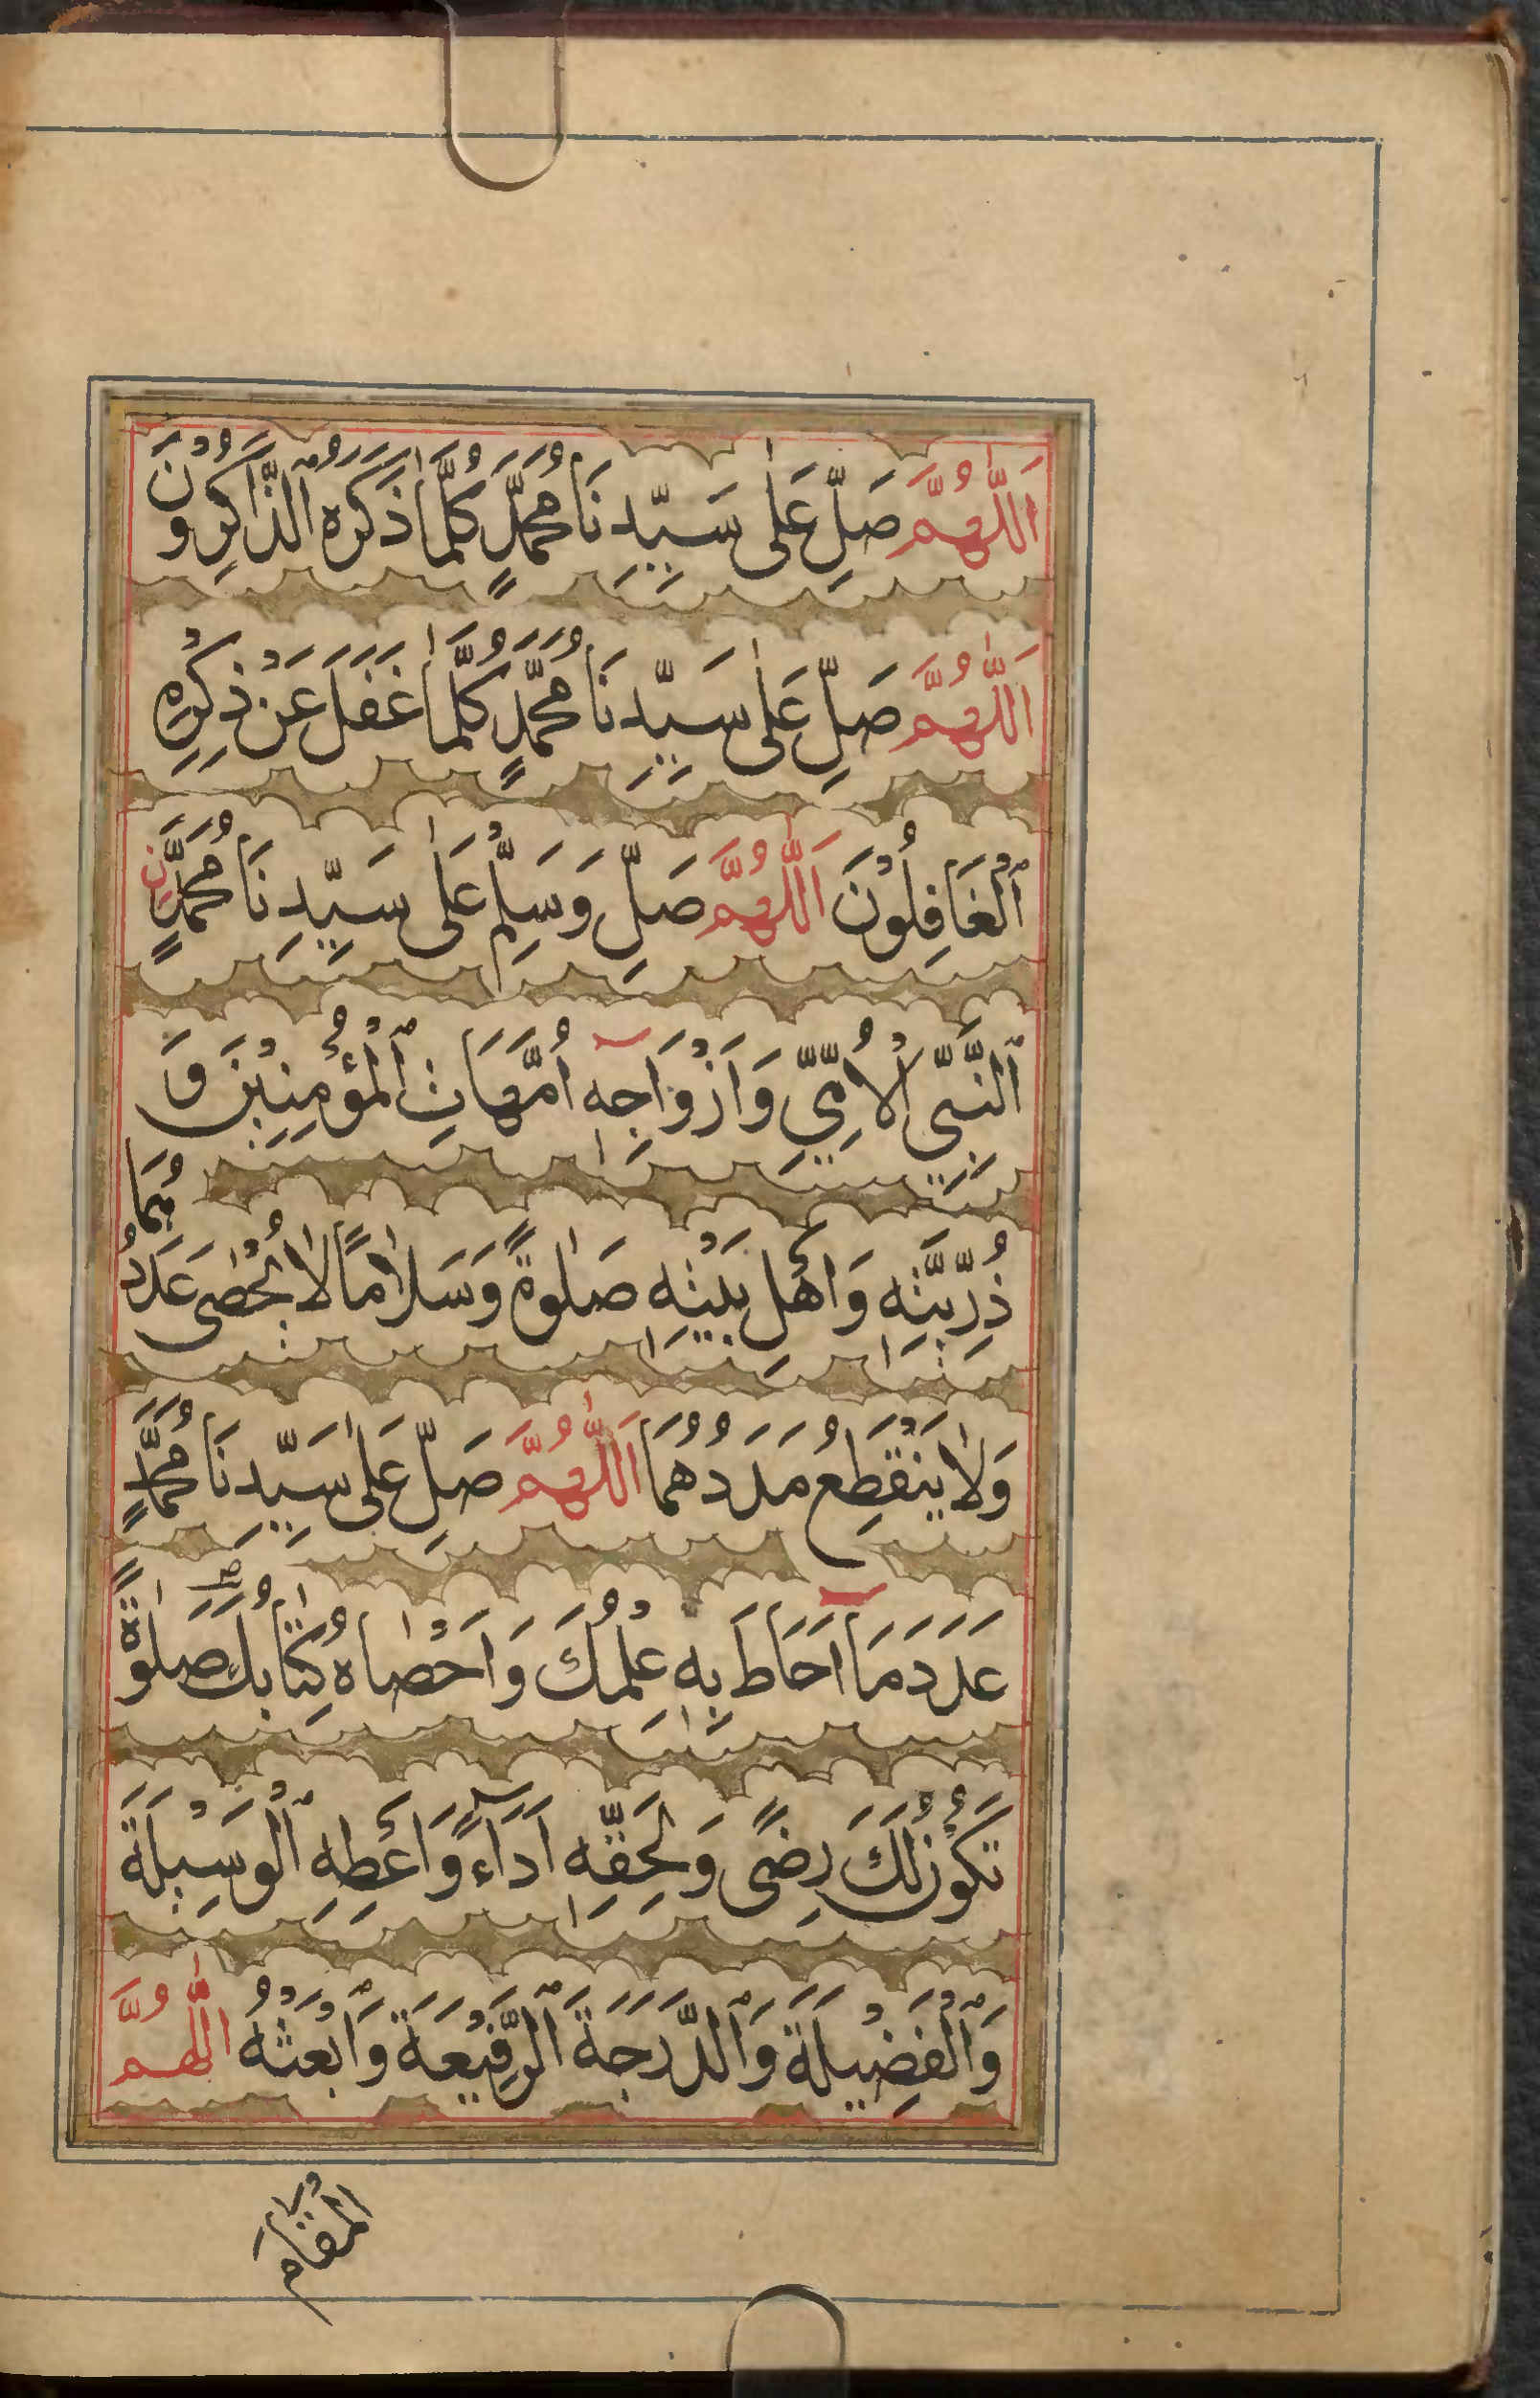 اَللّٰهُمَّ صَلِّ عَلٰى سَيِّدِنَا مُحَمَّدٍ كُلَّمَا ذَكَرَهُ ٱلذَّاكِرُوْنَ
اَللّٰهُمَّ صَلِّ عَلٰى سَيِّدِنَا مُحَمَّدٍ كُلَّمَا غَفَلَ عَنْ ذِكْرِهِ
ٱلْغَافِلُوْنَ اَللّٰهُمَّ صَلِّ وَسَلِّمْ عَلٰى سَيِّدِنَا مُحَمَّدٍنِ
ٱلنَّبِيِّ الْاُمِّيِّ وَاَزْوَاجِهٖ اُمَّهَاتِ ٱلْمُؤْمِنِيْنَ وَ
ذُرِّيَّتِهٖ وَاَهْلِ بَيْتِهٖ صَلٰوةً وَسَلَامًا لَا تُحْصٰى عَدَدُهُمَا
وَلَا يَنْقَطِعُ مَدَدُهُمَا اَللّٰهُمَّ صَلِّ عَلٰى سَيِّدِنَا مُحَمَّدٍ
عَدَدَ مَا اَحَاطَ بِهٖ عِلْمُكَ وَاَحْصَاهُ كِتَابُكَ صَلٰوةً
تَكُوْنُ لَكَ رِضًى وَلِحَقِّهٖ اَدَاءً وَاَعْطِهِ ٱلْوَسِيْلَةَ
وَٱلْفَضِيْلَةَ وَٱلدَّرَجَةَ ٱلرَّفِيْعَةَ وَٱبْعَثْهُ اللّٰهُمَّ
الْمَقَامَ